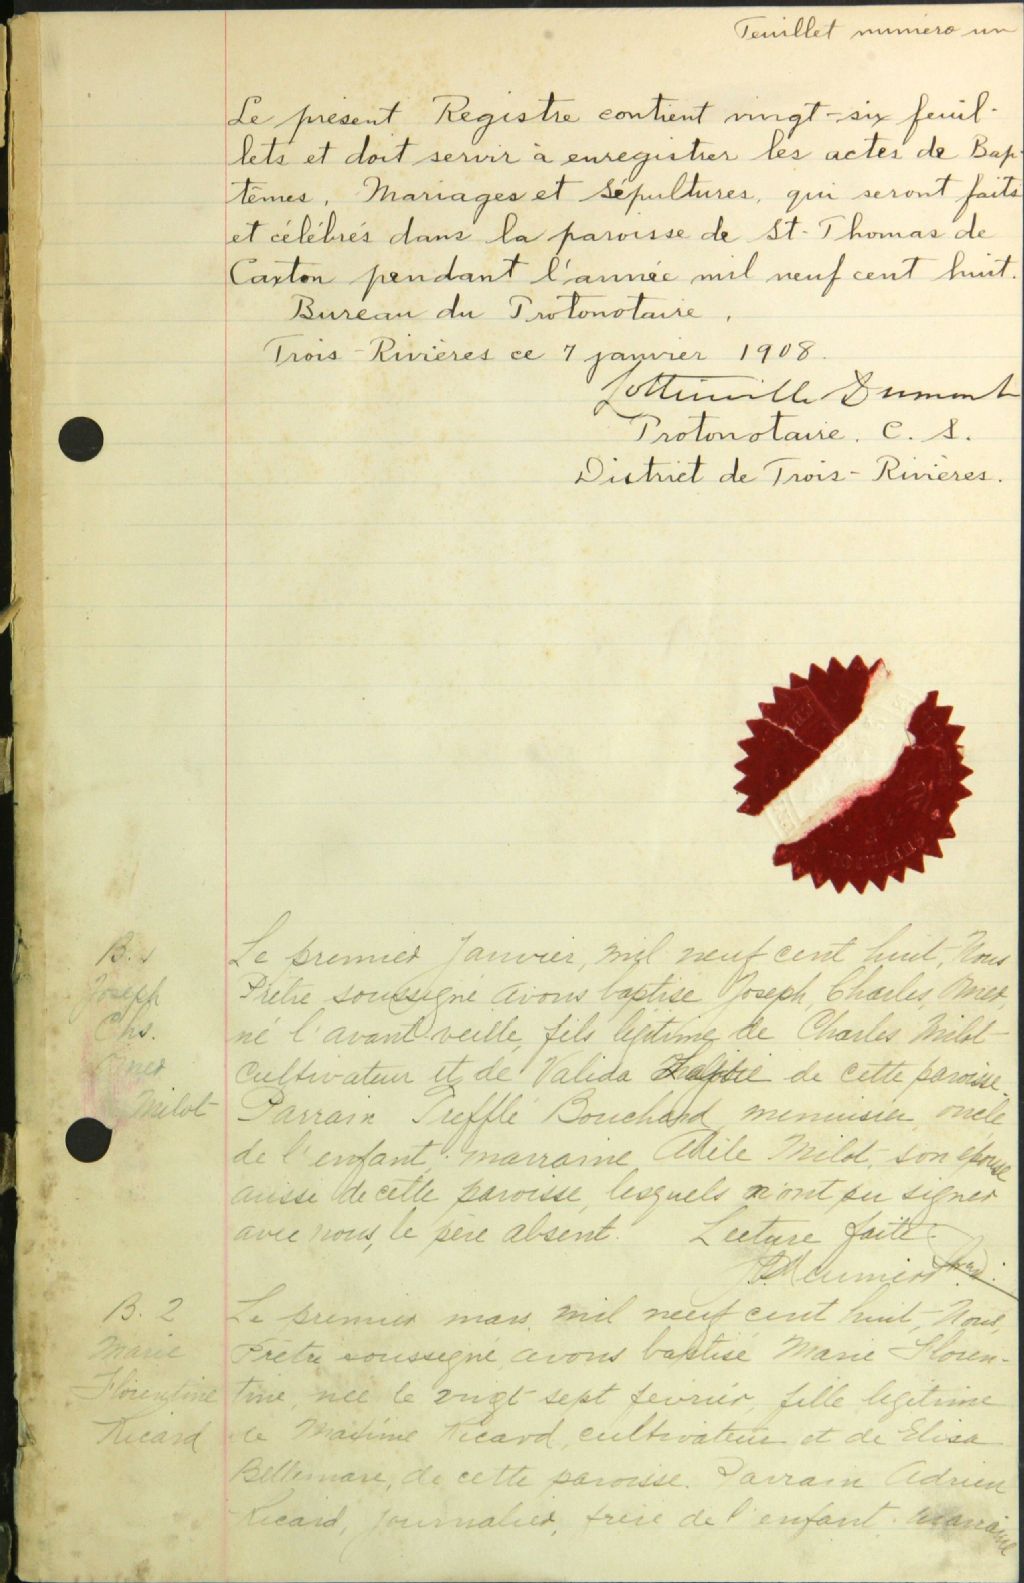 Feuillet numéro un
Le présent Registre contient vingt-six feuil-
lets et doit servir à enregistrer les actes de Bap-
têmes, Mariages et Sépultures, qui seront faits
et célébrés dans la paroisse de St-Thomas de
Caxton pendant l'année mil neuf cent huit.
Bureau du Protonotaire,
Trois-Rivières ce 7 janvier 1908.
Lottinville Dumont
Protonotaire. C. S.
District de Trois-Rivières.
B. 1
Joseph
Chs.
Milot
Le premier Janvier, mil neuf cent huit, Nous
Prêtre soussigné avons baptisé Joseph, Charles,
né l'avant-veille, fils légitime de Charles Milot
cultivateur et de Valida de cette paroisse.
Parrain Trefflé Bouchard menuisier, oncle
de l'enfant; marraine Adèle Milot, son épouse
aussi de cette paroisse, lesquels n'ont pu signer
avec nous, le père absent. Lecture faite.
B. 2
Marie
Florentine
Ricard
Le premier mars, mil neuf cent huit, Nous,
Prêtre soussigné, avons baptisé Marie Floren-
tine, née le vingt sept février, fille légitime
de Maxime Ricard, cultivateur et de Elisa
Bellemare, de cette paroisse. Parrain Adrien
Ricard, journalier, frère de l'enfant. marraine